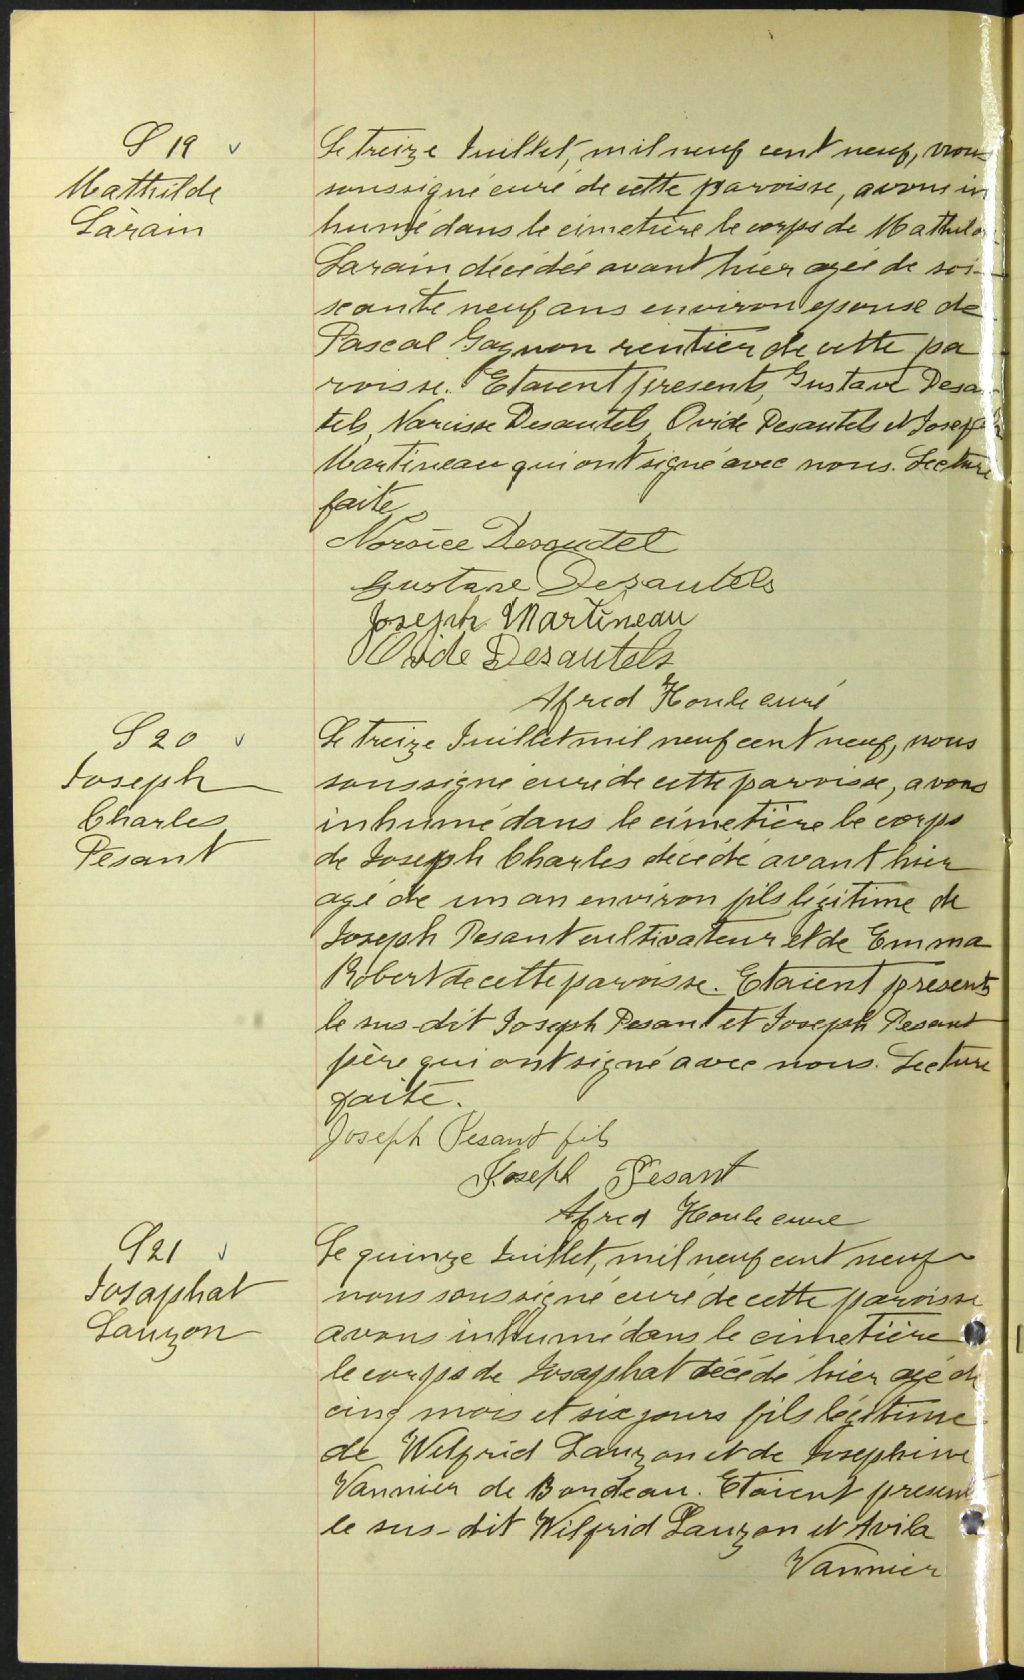 S 19
Mathilde
Larain
Le treize Juillet, mil neuf cent neuf, nous
soussigné curé de cette paroisse, avons in
humé dans le cimetière le corps de Mathilde
Larain décédée avant hier agée de soi-
xante neuf ans environ epouse de
Pascal Gagnon rentier de cette pa
roisse. Etaient presents, Gustave Desau-
tels, Narcisse Desautels, Ovide Desautels et Joseph
Martineau qui ont signé avec nous. Lecture
faite
Norsice Desoutel
Gustave Desautels
Joseph Martineau
Ovide Desautels
Alfred Houle curé
S 20
Joseph
Charles
Pesant
Le treize Juillet mil neuf cent neuf, nous
soussigné curé de cette paroisse, avons
inhumé dans le cimetière le corps
de Joseph Charles décédé avant hier
agé de un an environ fils légitime de
Joseph Pesant cultivateur et de Emma
Robert de cette paroisse. Etaient présents
le sus-dit Joseph Pesant et Joseph Pesant
père qui ont signé avec nous. Lecture
faite.
Joseph Pesant fils
Joseph Pesant
Alfred Houle curé
S 21
Josaphat
Lauzon
Le quinze Juillet, mil neuf cent neuf
nous soussigné curé de cette paroisse
avons inhumé dans le cimetière
le corps de Josaphat décédé hier agé de
cinq mois et six jours fils légitime
de Wilfrid Lauzon et de Josephine
Vannier de Bordeau. Etaient present
le sus-dit Wilfrid Lauzon et Avila
Vannier